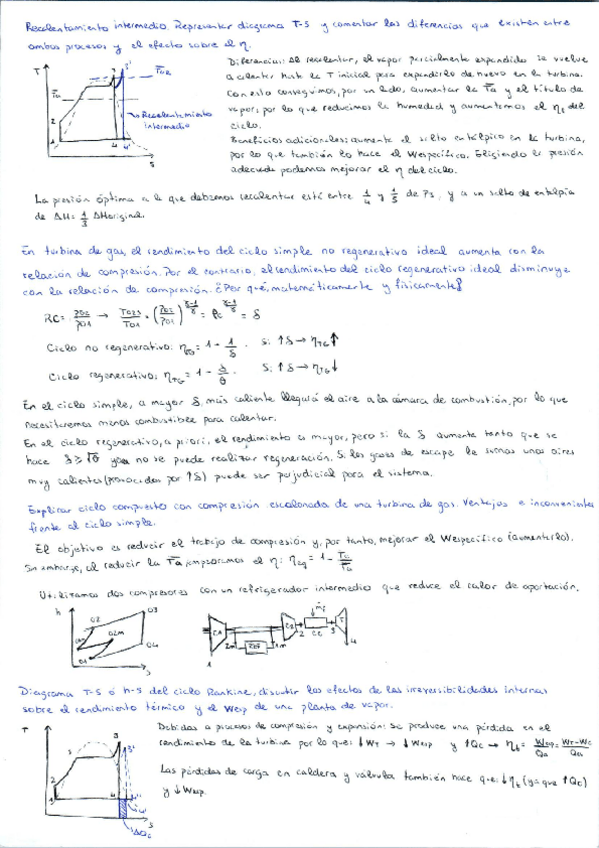 Recalentamiento intermedio. Representar diagrama T-S y comentar las diferencias que existen entre
ambos procesos y el efecto sobre el η.
Diferencias: Al recalentar, el vapor parcialmente expandido se vuelve
a calentar hasta la T inicial para expandirlo de nuevo en la turbina.
Con esto conseguimos, por un lado, aumentar la Ta y el título de
vapor, por lo que reducimos la humedad y aumentamos el η del
ciclo.
Recalentamiento
intermedio
Beneficios adicionales: aumenta el salto entálpico en la turbina,
por lo que también lo hace el Wespecífico. Eligiendo la presión
adecuada podemos mejorar el η del ciclo.
La presión óptima a la que debemos recalentar está entre 1/4 y 1/5 de P3, y a un salto de entalpía
de ΔH= 1/3 ΔHoriginal.
En turbina de gas, el rendimiento del ciclo simple no regenerativo ideal aumenta con la
relación de compresión. Por el contrario, el rendimiento del ciclo regenerativo ideal disminuye
con la relación de compresión. ¿Por qué, matemáticamente y físicamente?
Ciclo no regenerativo: η = 1 - 1/δ . Si ↑δ → ηTG ↑
Ciclo regenerativo: ηTG = 1 - δ/θ . Si ↑δ → ηTG ↓
En el ciclo simple, a mayor δ, más caliente llegará el aire a la cámara de combustión, por lo que
necesitaremos menos combustible para calentar.
En el ciclo regenerativo, a priori, el rendimiento es mayor, pero si la δ aumenta tanto que se
hace δ ≥ √θ ya no se puede realizar regeneración. Si los gases de escape le suman unos aires
muy calientes (provocados por ↑δ) puede ser perjudicial para el sistema.
Explicar ciclo compuesto con compresión escalonada de una turbina de gas. Ventajas e inconvenientes
frente al ciclo simple.
El objetivo es reducir el trabajo de compresión y, por tanto, mejorar el Wespecífico (aumentarlo).
Sin embargo, al reducir la Ta, empeoramos el η:
Utilizamos dos compresores con un refrigerador intermedio que reduce el calor de aportación.
h 02 03 02m 04 01 s
C1 C2 CC T
1 2m 1m 2 3 4
Diagrama T-S ó h-S del ciclo Rankine, discutir los efectos de las irreversibilidades internas
sobre el rendimiento térmico y el Wesp de una planta de vapor.
Debidas a procesos de compresión y expansión: Se produce una pérdida en el
rendimiento de la turbina por lo que: ↓WT → ↓Wesp y ↑Qc →
Las pérdidas de carga en caldera y válvula también hace que: ↓ηt (ya que ↑Qc)
y ↓Wesp.
ΔQc